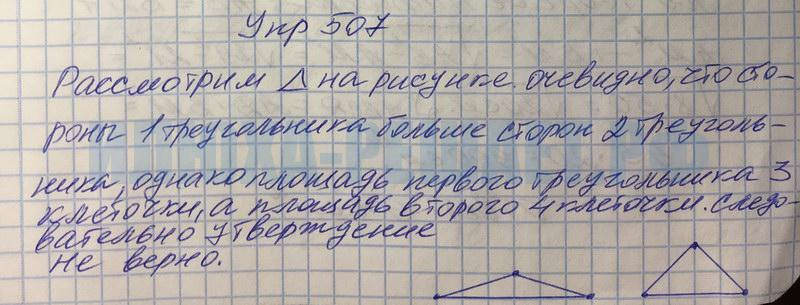 Упр 507
Рассмотрим △ на рисунке. очевидно, что сто-
роны 1 треугольника больше сторон 2 треуголь-
ника, однако площадь первого треугольника 3
клеточки, а площадь второго 4 клеточки. следо-
вательно утверждение
не верно.